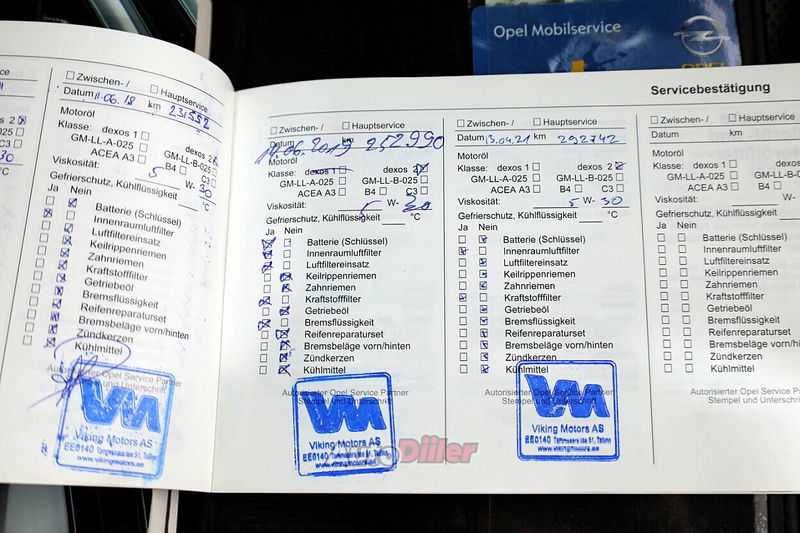 Opel Mobilservice
OPEL
Servicebestätigung
Zwischen- / Hauptservice
Datum 11.06.18 km 231552
Motoröl
Klasse: dexos 1 dexos 2
GM-LL-A-025 GM-LL-B-025
ACEA A3 B4 C3
Viskosität: 5 W- 30
Gefrierschutz, Kühlflüssigkeit °C
Ja Nein
Batterie (Schlüssel)
Innenraumluftfilter
Luftfiltereinsatz
Keilrippenriemen
Zahnriemen
Kraftstofffilter
Getriebeöl
Bremsflüssigkeit
Reifenreparaturset
Bremsbeläge vorn/hinten
Zündkerzen
Kühlmittel
Autorisierter Opel Service Partner
Stempel und Unterschrift
VM
Viking Motors AS
EE0140 Tammsaare tee 51, Tallinn
www.vikingmotors.ee
Zwischen- / Hauptservice
Datum 14.06.2019 km 252990
Motoröl
Klasse: dexos 1 dexos 2
GM-LL-A-025 GM-LL-B-025
ACEA A3 B4 C3
Viskosität: 5 W- 30
Gefrierschutz, Kühlflüssigkeit °C
Ja Nein
Batterie (Schlüssel)
Innenraumluftfilter
Luftfiltereinsatz
Keilrippenriemen
Zahnriemen
Kraftstofffilter
Getriebeöl
Bremsflüssigkeit
Reifenreparaturset
Bremsbeläge vorn/hinten
Zündkerzen
Kühlmittel
Autorisierter Opel Service Partner
Stempel und Unterschrift
VM
Viking Motors AS
EE0140 Tammsaare tee 51, Tallinn
www.vikingmotors.ee
Diiler
Zwischen- / Hauptservice
Datum 13.04.21 km 292742
Motoröl
Klasse: dexos 1 dexos 2
GM-LL-A-025 GM-LL-B-025
ACEA A3 B4 C3
Viskosität: 5 W- 30
Gefrierschutz, Kühlflüssigkeit °C
Ja Nein
Batterie (Schlüssel)
Innenraumluftfilter
Luftfiltereinsatz
Keilrippenriemen
Zahnriemen
Kraftstofffilter
Getriebeöl
Bremsflüssigkeit
Reifenreparaturset
Bremsbeläge vorn/hinten
Zündkerzen
Kühlmittel
Autorisierter Opel Service Partner
Stempel und Unterschrift
VM
Viking Motors AS
EE0140 Tammsaare tee 51, Tallinn
www.vikingmotors.ee
Zwischen- / Hauptservice
Datum km
Motoröl
Klasse: dexos 1 dexos 2
GM-LL-A-025 GM-LL-B-
ACEA A3 B4 C
Viskosität: W-
Gefrierschutz, Kühlflüssigkeit
Ja Nein
Batterie (Schlüssel)
Innenraumluftfilter
Luftfiltereinsatz
Keilrippenriemen
Zahnriemen
Kraftstofffilter
Getriebeöl
Bremsflüssigkeit
Reifenreparaturset
Bremsbeläge vorn/hinten
Zündkerzen
Kühlmittel
Autorisierter Opel Service Par
Stempel und Unterschrift